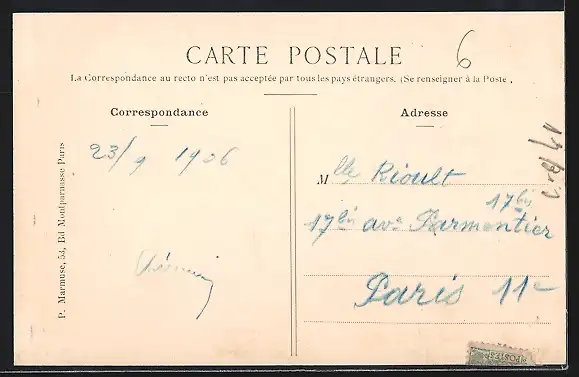 6
CARTE POSTALE
La Correspondance au recto n'est pas acceptée par tous les pays étrangers. (Se renseigner à la Poste.
Correspondance
Adresse
23/9 1906
Mlle Rioult
17bis
17bis ave Parmentier
Paris 11e
P. Marmuse, 53, Bd Montparnasse Paris
POSTES